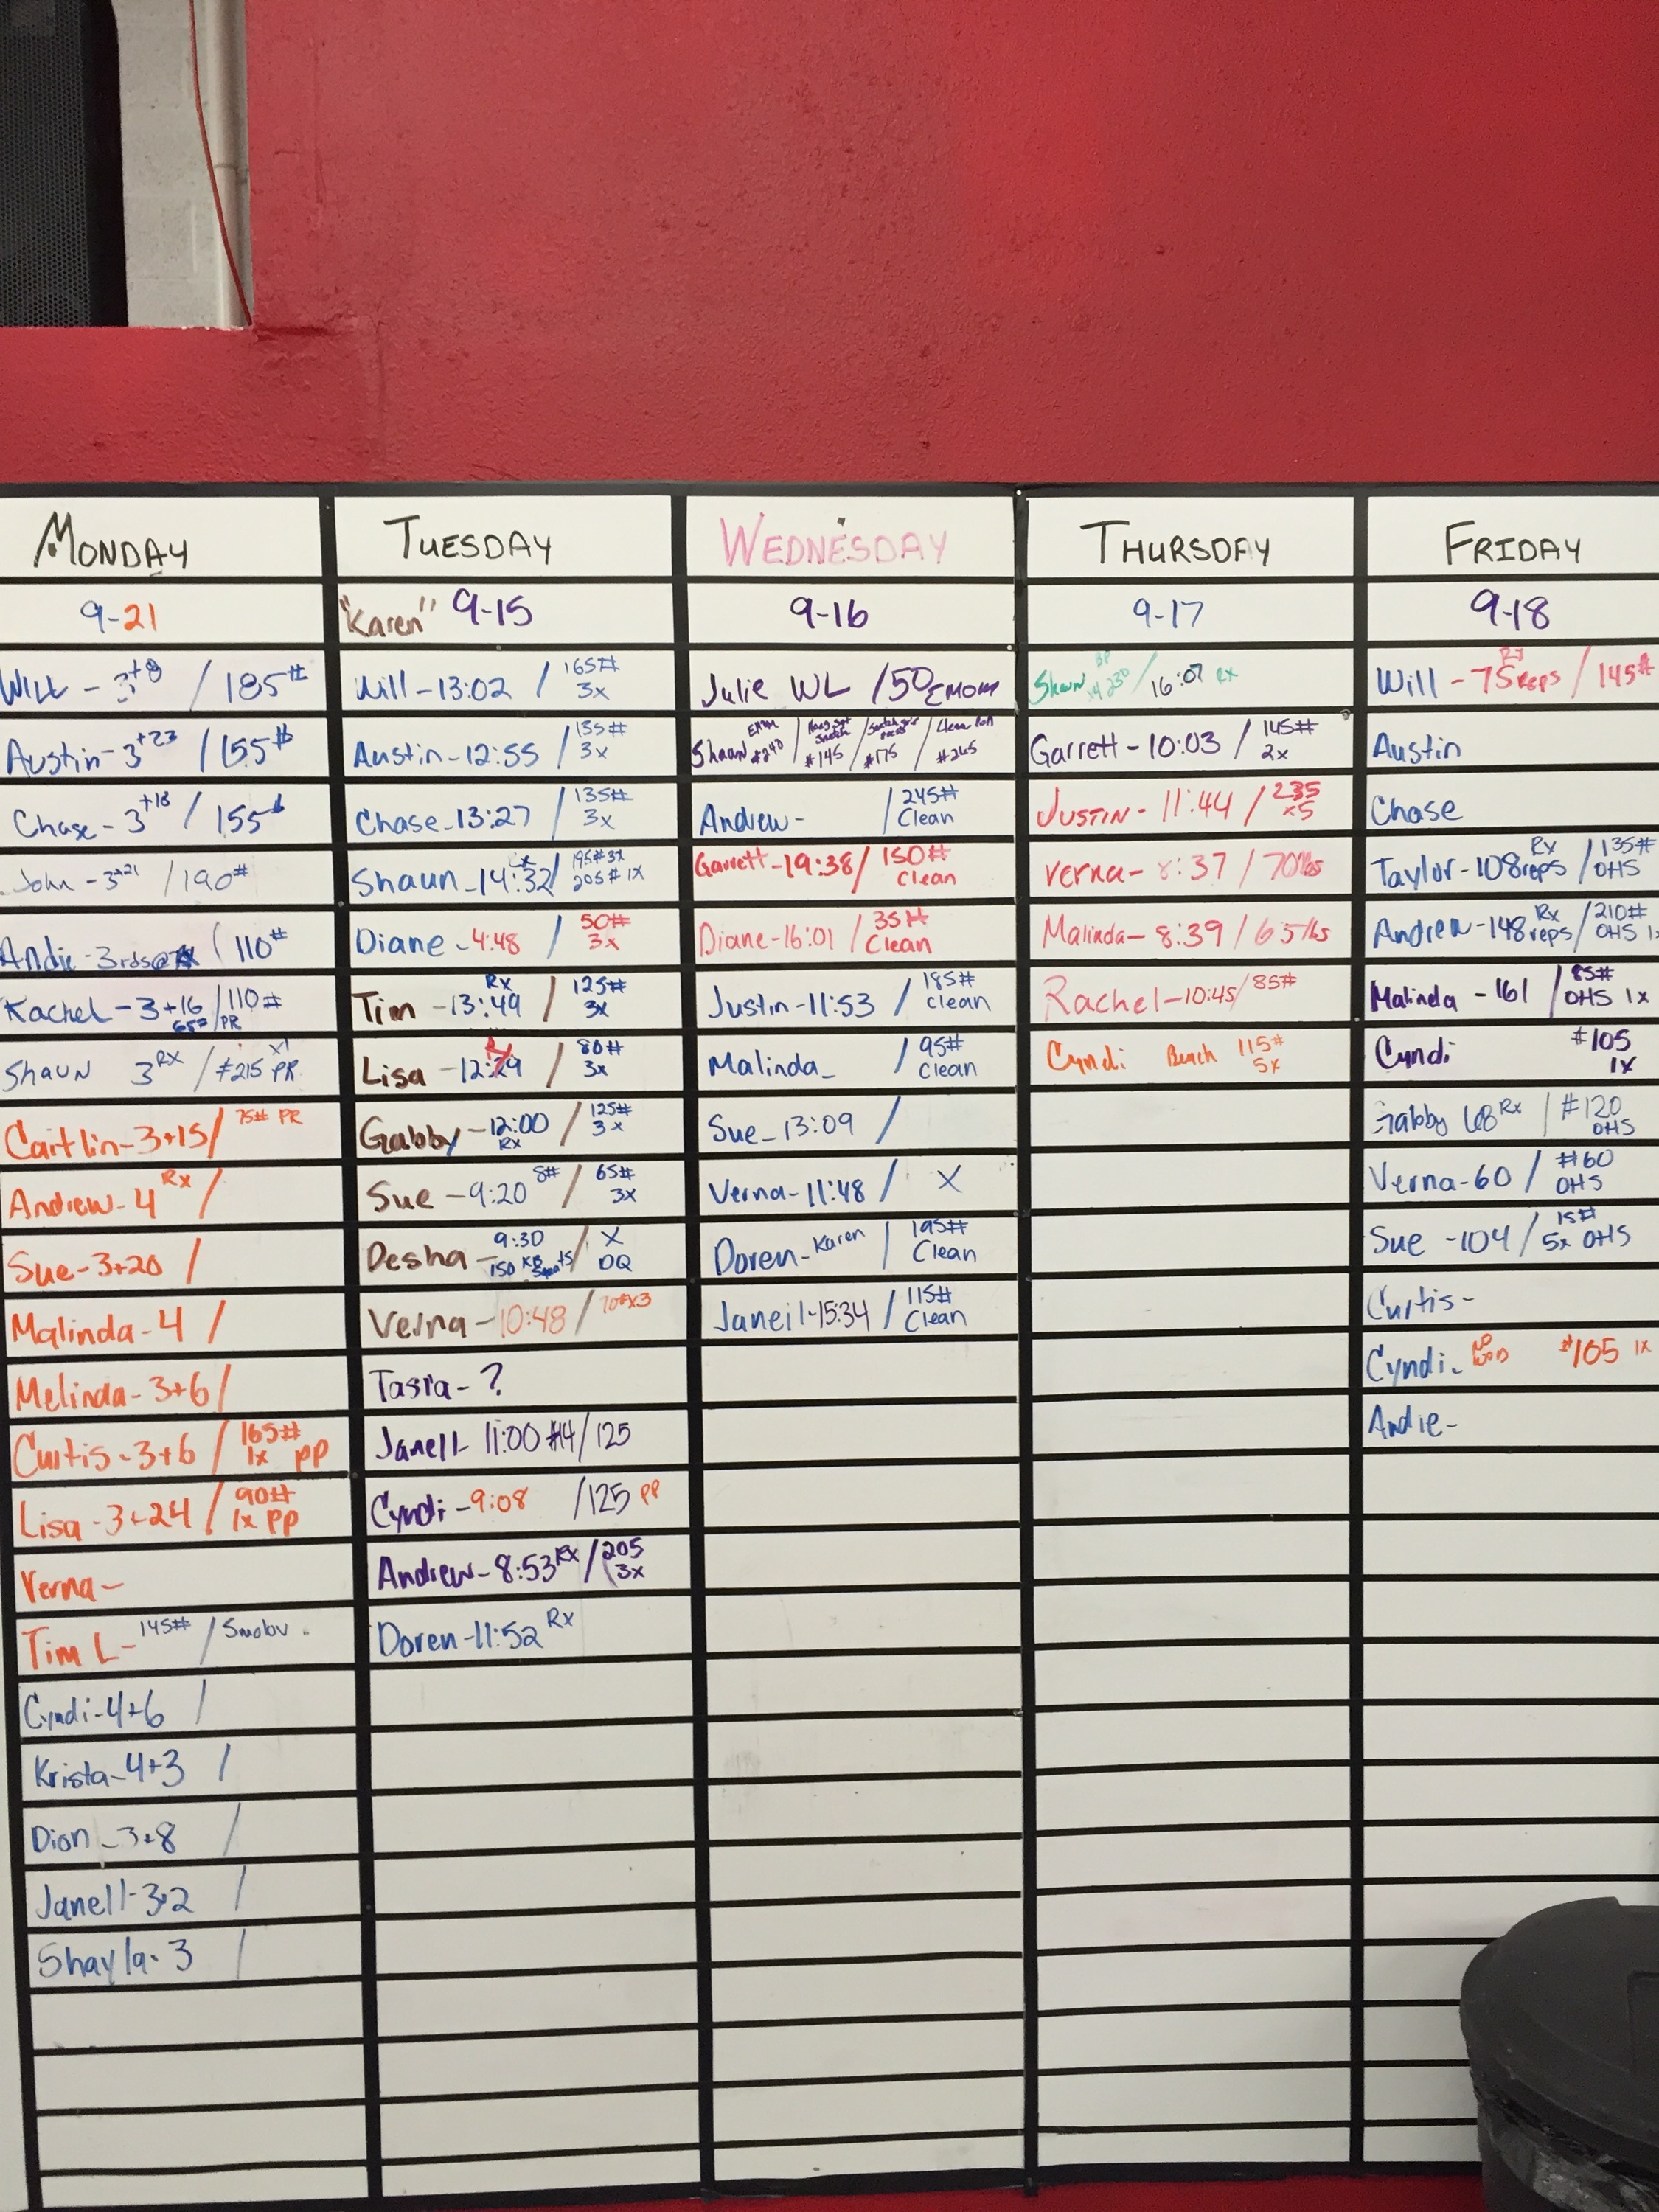 MONDAY
9-21
WILL - 3+8 / 185#
Austin - 3+23 / 155#
Chase - 3+18 / 155#
John - 3+21 / 190#
Andie - 3rds@ / 110#
Rachel - 3+16 / 110#
65# / PR
SHAUN 3 RX / #215 x1 PR
Caitlin - 3+15 / 75# PR
Andrew - 4 Rx /
Sue - 3+20 /
Malinda - 4 /
Melinda - 3+6 /
Curtis - 3+6 / 165#
1x PP
Lisa - 3+24 / 90#
1x PP
Verna -
Tim L - 145# / Smolov
Cyndi - 4+6 /
Krista - 4+3 /
Dion - 3+8 /
Janell - 3+2 /
Shayla - 3 /
TUESDAY
"Karen" 9-15
Will - 13:02 / 165#
3x
Austin - 12:55 / 135#
3x
Chase - 13:27 / 135#
3x
Shaun - 14:32 / 195# 3x
205# 1x
Diane - 4:48 / 50#
3x
Tim - 13:49 Rx / 125#
3x
Lisa - / 80#
3x
Gabby - 12:00 / 125#
Rx 3x
Sue - 9:20 8# / 65#
3x
Desha - 9:30 / X
150 KB Squats DQ
Verna - 10:48 / 70# x3
Tasia - ?
Janell - 11:00 #14 / 125
Cyndi - 9:08 / 125 PP
Andrew - 8:53 Rx / 205
3x
Doren - 11:52 Rx
WEDNESDAY
9-16
Julie WL / 50 EMOM
Shaun EMOM #240 / Hang Sqt Snatch #145 / Snatch grip press #175 / Clean Pull #265
Andrew - / 245#
Clean
Garrett - 19:38 / 150#
Clean
Diane - 16:01 / 35#
Clean
Justin - 11:53 / 185#
Clean
Malinda - / 95#
Clean
Sue - 13:09 /
Verna - 11:48 / X
Doren - Karen / 195#
Clean
Janeil - 15:34 / 115#
Clean
THURSDAY
9-17
Shaun BP x4 230 / 16:07 Rx
Garrett - 10:03 / 145#
2x
JUSTIN - 11:44 / 235
x5
Verna - 8:37 / 70lbs
Malinda - 8:39 / 65lbs
Rachel - 10:45 / 85#
Cyndi Bench 115#
5x
FRIDAY
9-18
Will - 75 reps Rx / 145#
Austin
Chase
Taylor - 108 reps Rx / 135#
OHS
Andrew - 148 reps Rx / 210#
OHS
Malinda - 161 / 85#
OHS 1x
Cyndi #105
1x
Gabby 68 Rx / #120
OHS
Verna - 60 / #60
OHS
Sue - 104 / 15#
5x OHS
Curtis -
Cyndi - NO WOD #105 1x
Andie -